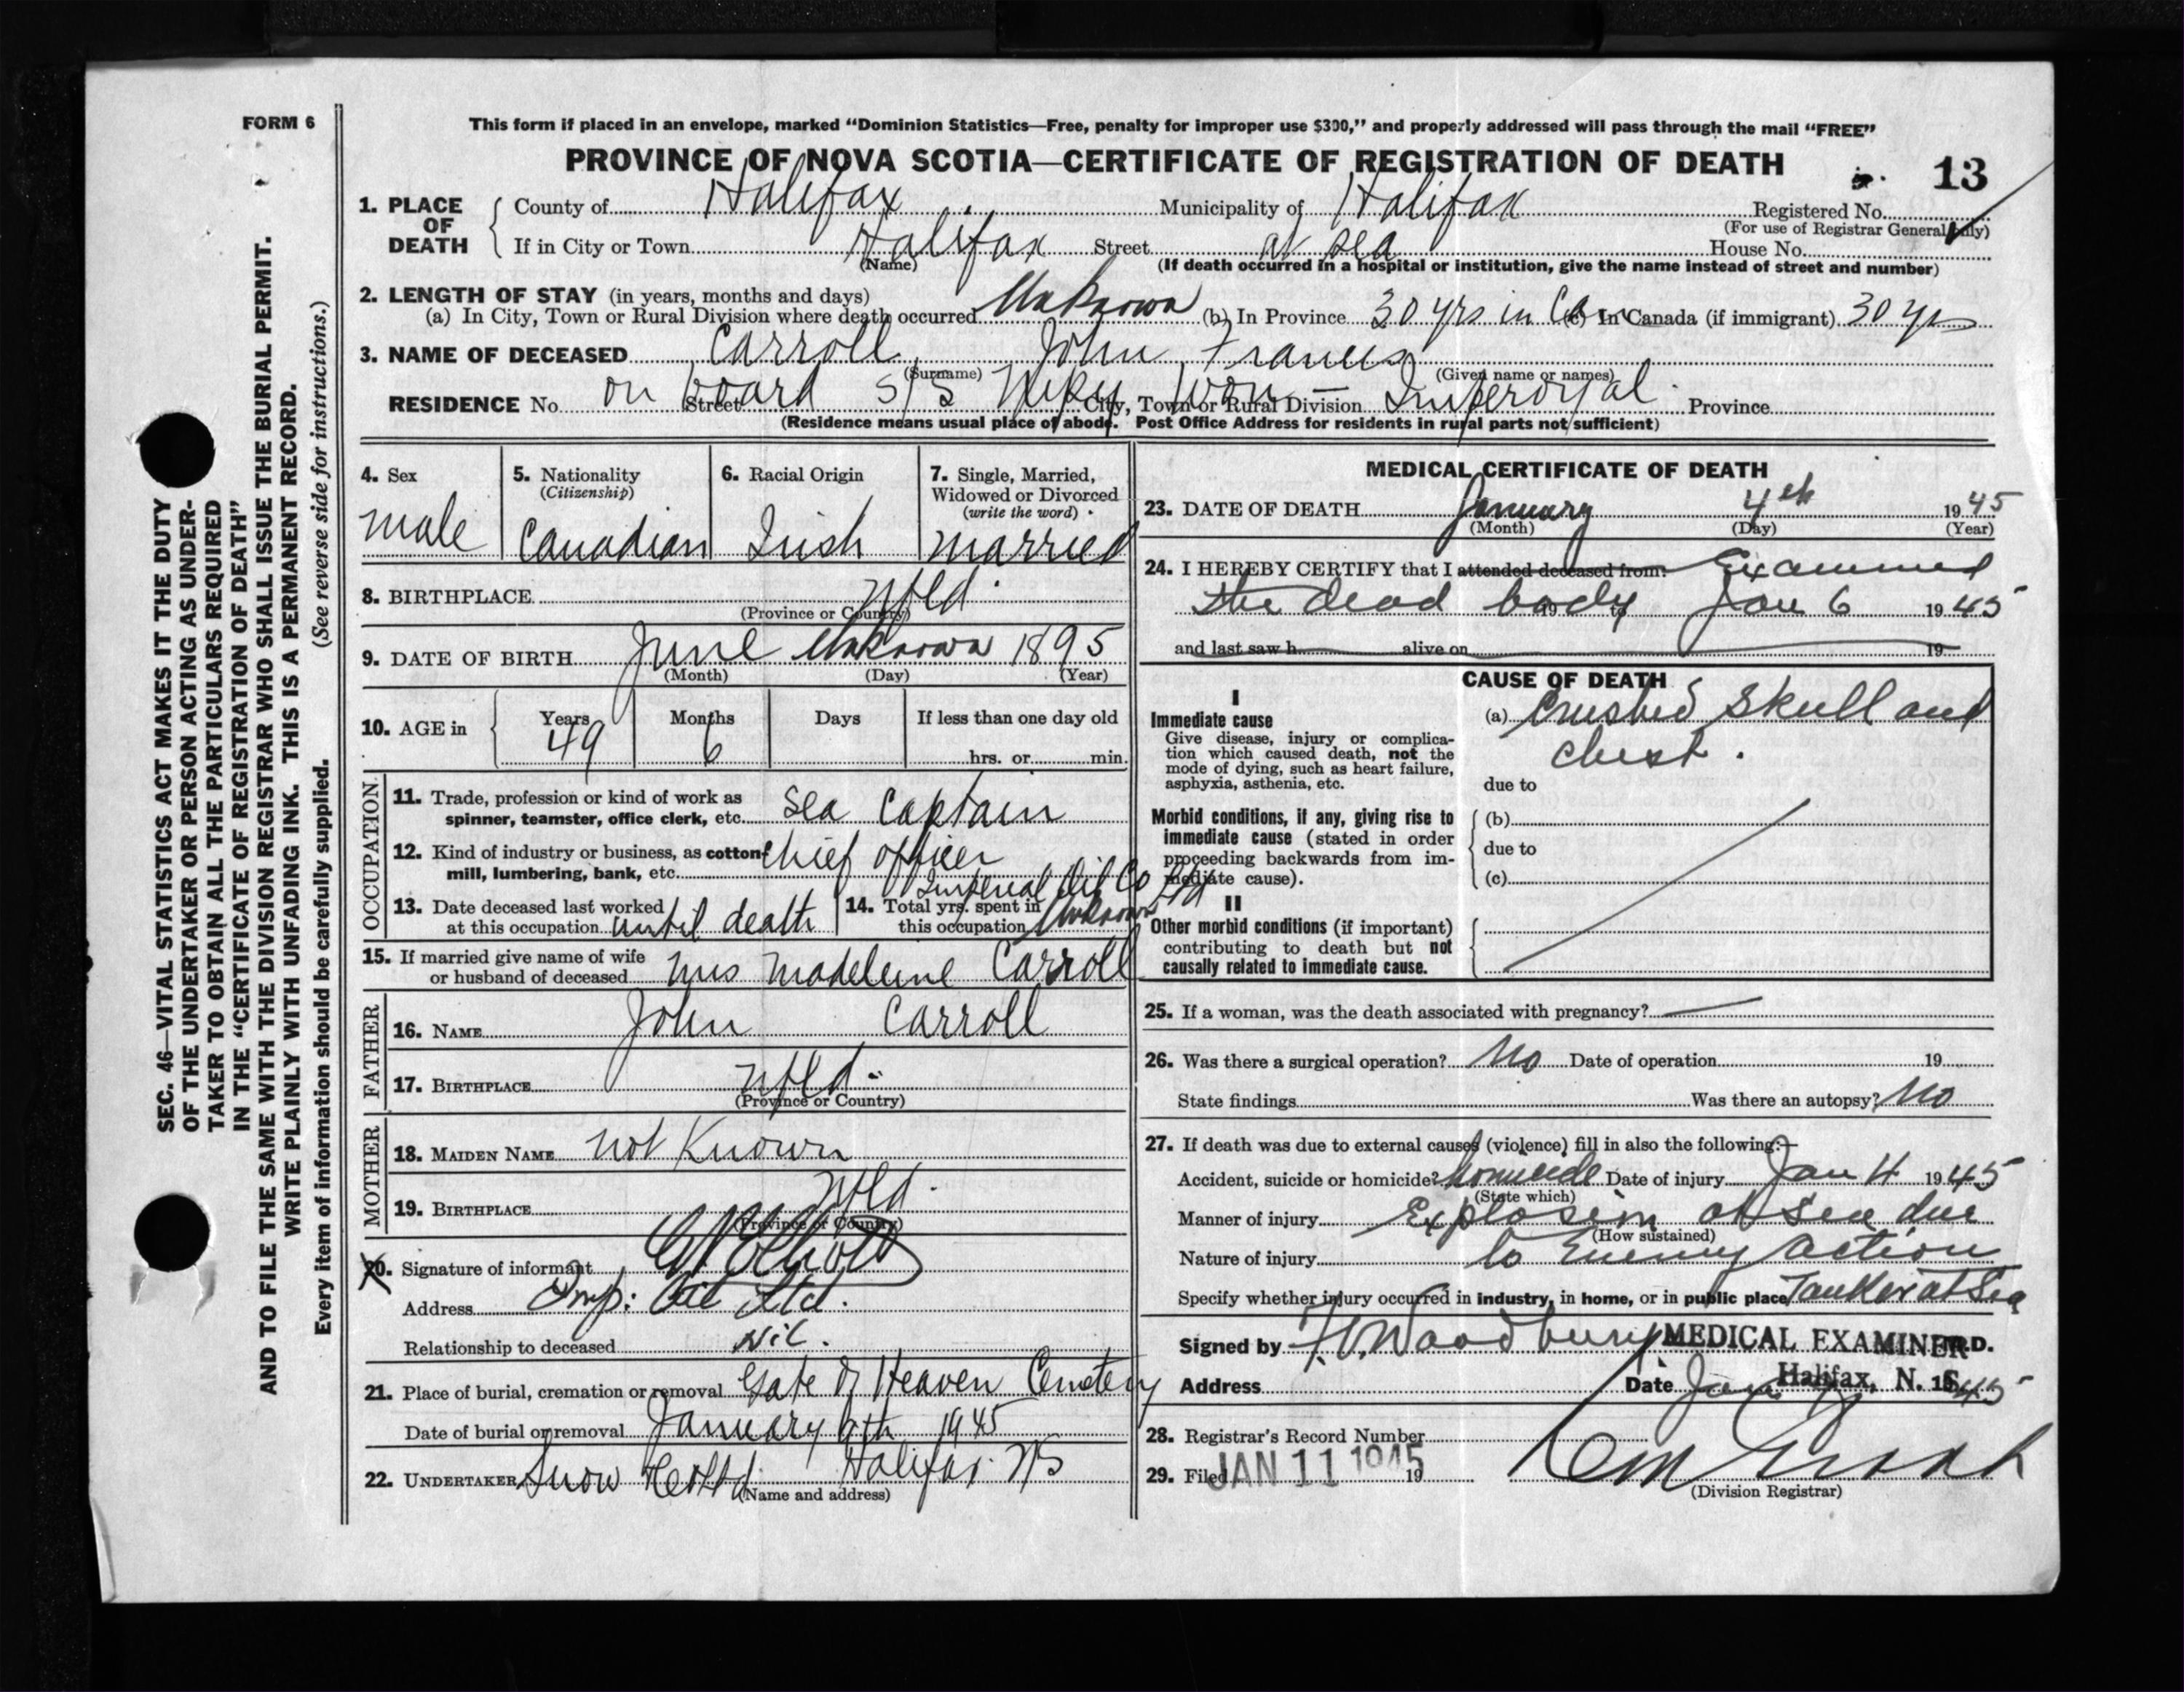 FORM 6
This form if placed in an envelope, marked "Dominion Statistics—Free, penalty for improper use $300," and properly addressed will pass through the mail "FREE"
PROVINCE OF NOVA SCOTIA—CERTIFICATE OF REGISTRATION OF DEATH
13
1. PLACE OF DEATH
County of Halifax Municipality of Halifax Registered No.
(For use of Registrar General only)
If in City or Town Halifax Street at sea House No.
(Name) (If death occurred in a hospital or institution, give the name instead of street and number)
2. LENGTH OF STAY (in years, months and days)
(a) In City, Town or Rural Division where death occurred Unknown (b) In Province 30 yrs in Can (c) In Canada (if immigrant) 30 yrs
3. NAME OF DECEASED Carroll, John Francis
(Surname) (Given name or names)
RESIDENCE No. on board Street S/S Nipiwan — City, Town or Rural Division Imperoyal Province
(Residence means usual place of abode. Post Office Address for residents in rural parts not sufficient)
4. Sex male
5. Nationality (Citizenship) Canadian
6. Racial Origin Irish
7. Single, Married, Widowed or Divorced (write the word) married
8. BIRTHPLACE Nfld.
(Province or Country)
9. DATE OF BIRTH June Unknown 1895
(Month) (Day) (Year)
10. AGE in Years 49 Months 6 Days If less than one day old
hrs. or min.
OCCUPATION
11. Trade, profession or kind of work as
spinner, teamster, office clerk, etc. Sea Captain
12. Kind of industry or business, as cotton Chief officer
mill, lumbering, bank, etc. Imperial Oil Co Ltd
13. Date deceased last worked
at this occupation until death
14. Total yrs. spent in
this occupation Unknown
15. If married give name of wife
or husband of deceased Mrs Madeleine Carroll
FATHER
16. NAME John Carroll
17. BIRTHPLACE Nfld.
(Province or Country)
MOTHER
18. MAIDEN NAME not Known
19. BIRTHPLACE Nfld.
(Province or Country)
20. Signature of informant
Address Imp: Oil Ltd.
Relationship to deceased Nil.
21. Place of burial, cremation or removal Gate of Heaven Cemetery
Date of burial or removal January 9th 1945
22. UNDERTAKER Snow & Co Ltd. Halifax NS
(Name and address)
MEDICAL CERTIFICATE OF DEATH
23. DATE OF DEATH January 4th 1945
(Month) (Day) (Year)
24. I HEREBY CERTIFY that I attended deceased from: Examined
the dead body 19 to Jan 6 1945
and last saw h alive on 19
CAUSE OF DEATH
I
Immediate cause
Give disease, injury or complica-
tion which caused death, not the
mode of dying, such as heart failure,
asphyxia, asthenia, etc.
(a) Crushed Skull and
chest.
due to
Morbid conditions, if any, giving rise to
immediate cause (stated in order
proceeding backwards from im-
mediate cause).
(b)
due to
(c)
II
Other morbid conditions (if important)
contributing to death but not
causally related to immediate cause.
25. If a woman, was the death associated with pregnancy? —
26. Was there a surgical operation? No Date of operation 19
State findings Was there an autopsy? No
27. If death was due to external causes (violence) fill in also the following:—
Accident, suicide or homicide? Homicide Date of injury Jan 4 1945
(State which)
Manner of injury Explosion at Sea due
(How sustained)
Nature of injury to Enemy action
Specify whether injury occurred in industry, in home, or in public place Tanker at Sea
Signed by F. V. Woodbury MEDICAL EXAMINER M.D.
Halifax, N. S.
Address Date Jan 1945
28. Registrar's Record Number
29. Filed JAN 11 1945 19
(Division Registrar)
SEC. 46—VITAL STATISTICS ACT MAKES IT THE DUTY
OF THE UNDERTAKER OR PERSON ACTING AS UNDER-
TAKER TO OBTAIN ALL THE PARTICULARS REQUIRED
IN THE "CERTIFICATE OF REGISTRATION OF DEATH"
AND TO FILE THE SAME WITH THE DIVISION REGISTRAR WHO SHALL ISSUE THE BURIAL PERMIT.
WRITE PLAINLY WITH UNFADING INK. THIS IS A PERMANENT RECORD.
Every item of information should be carefully supplied. (See reverse side for instructions.)